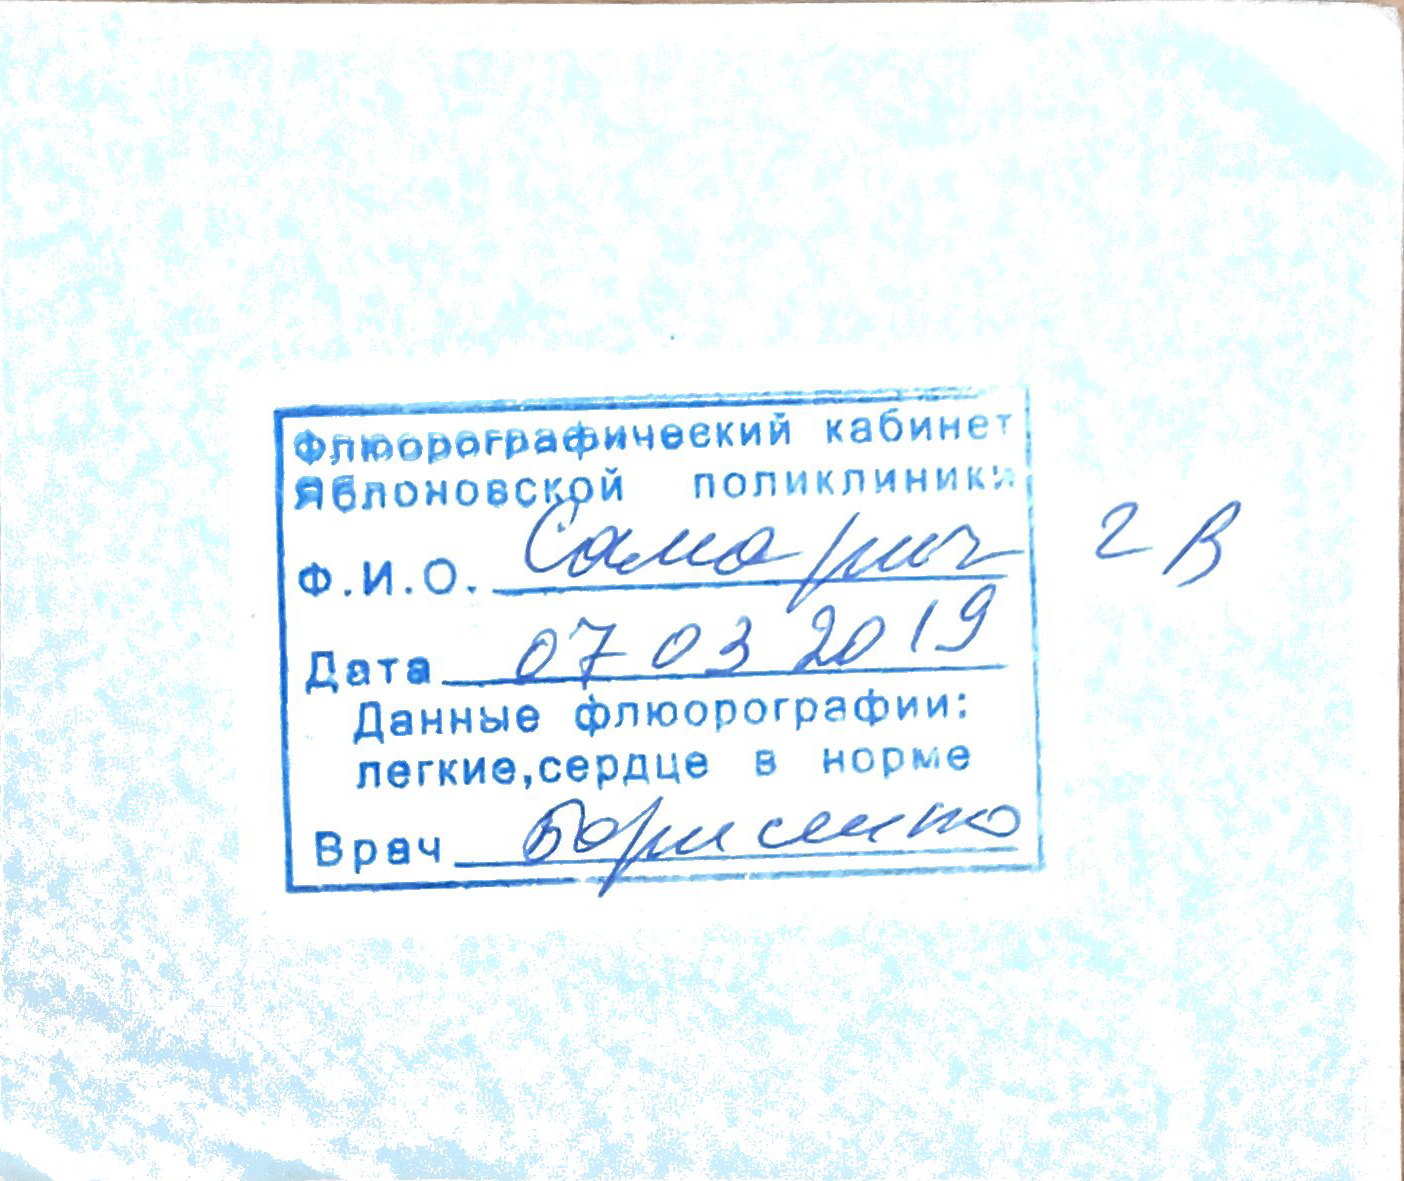 Флюорографический кабинет
Яблоновской поликлиники
Ф.И.О. Самарич г В
Дата 07 03 2019
Данные флюорографии:
легкие,сердце в норме
Врач Борисенко